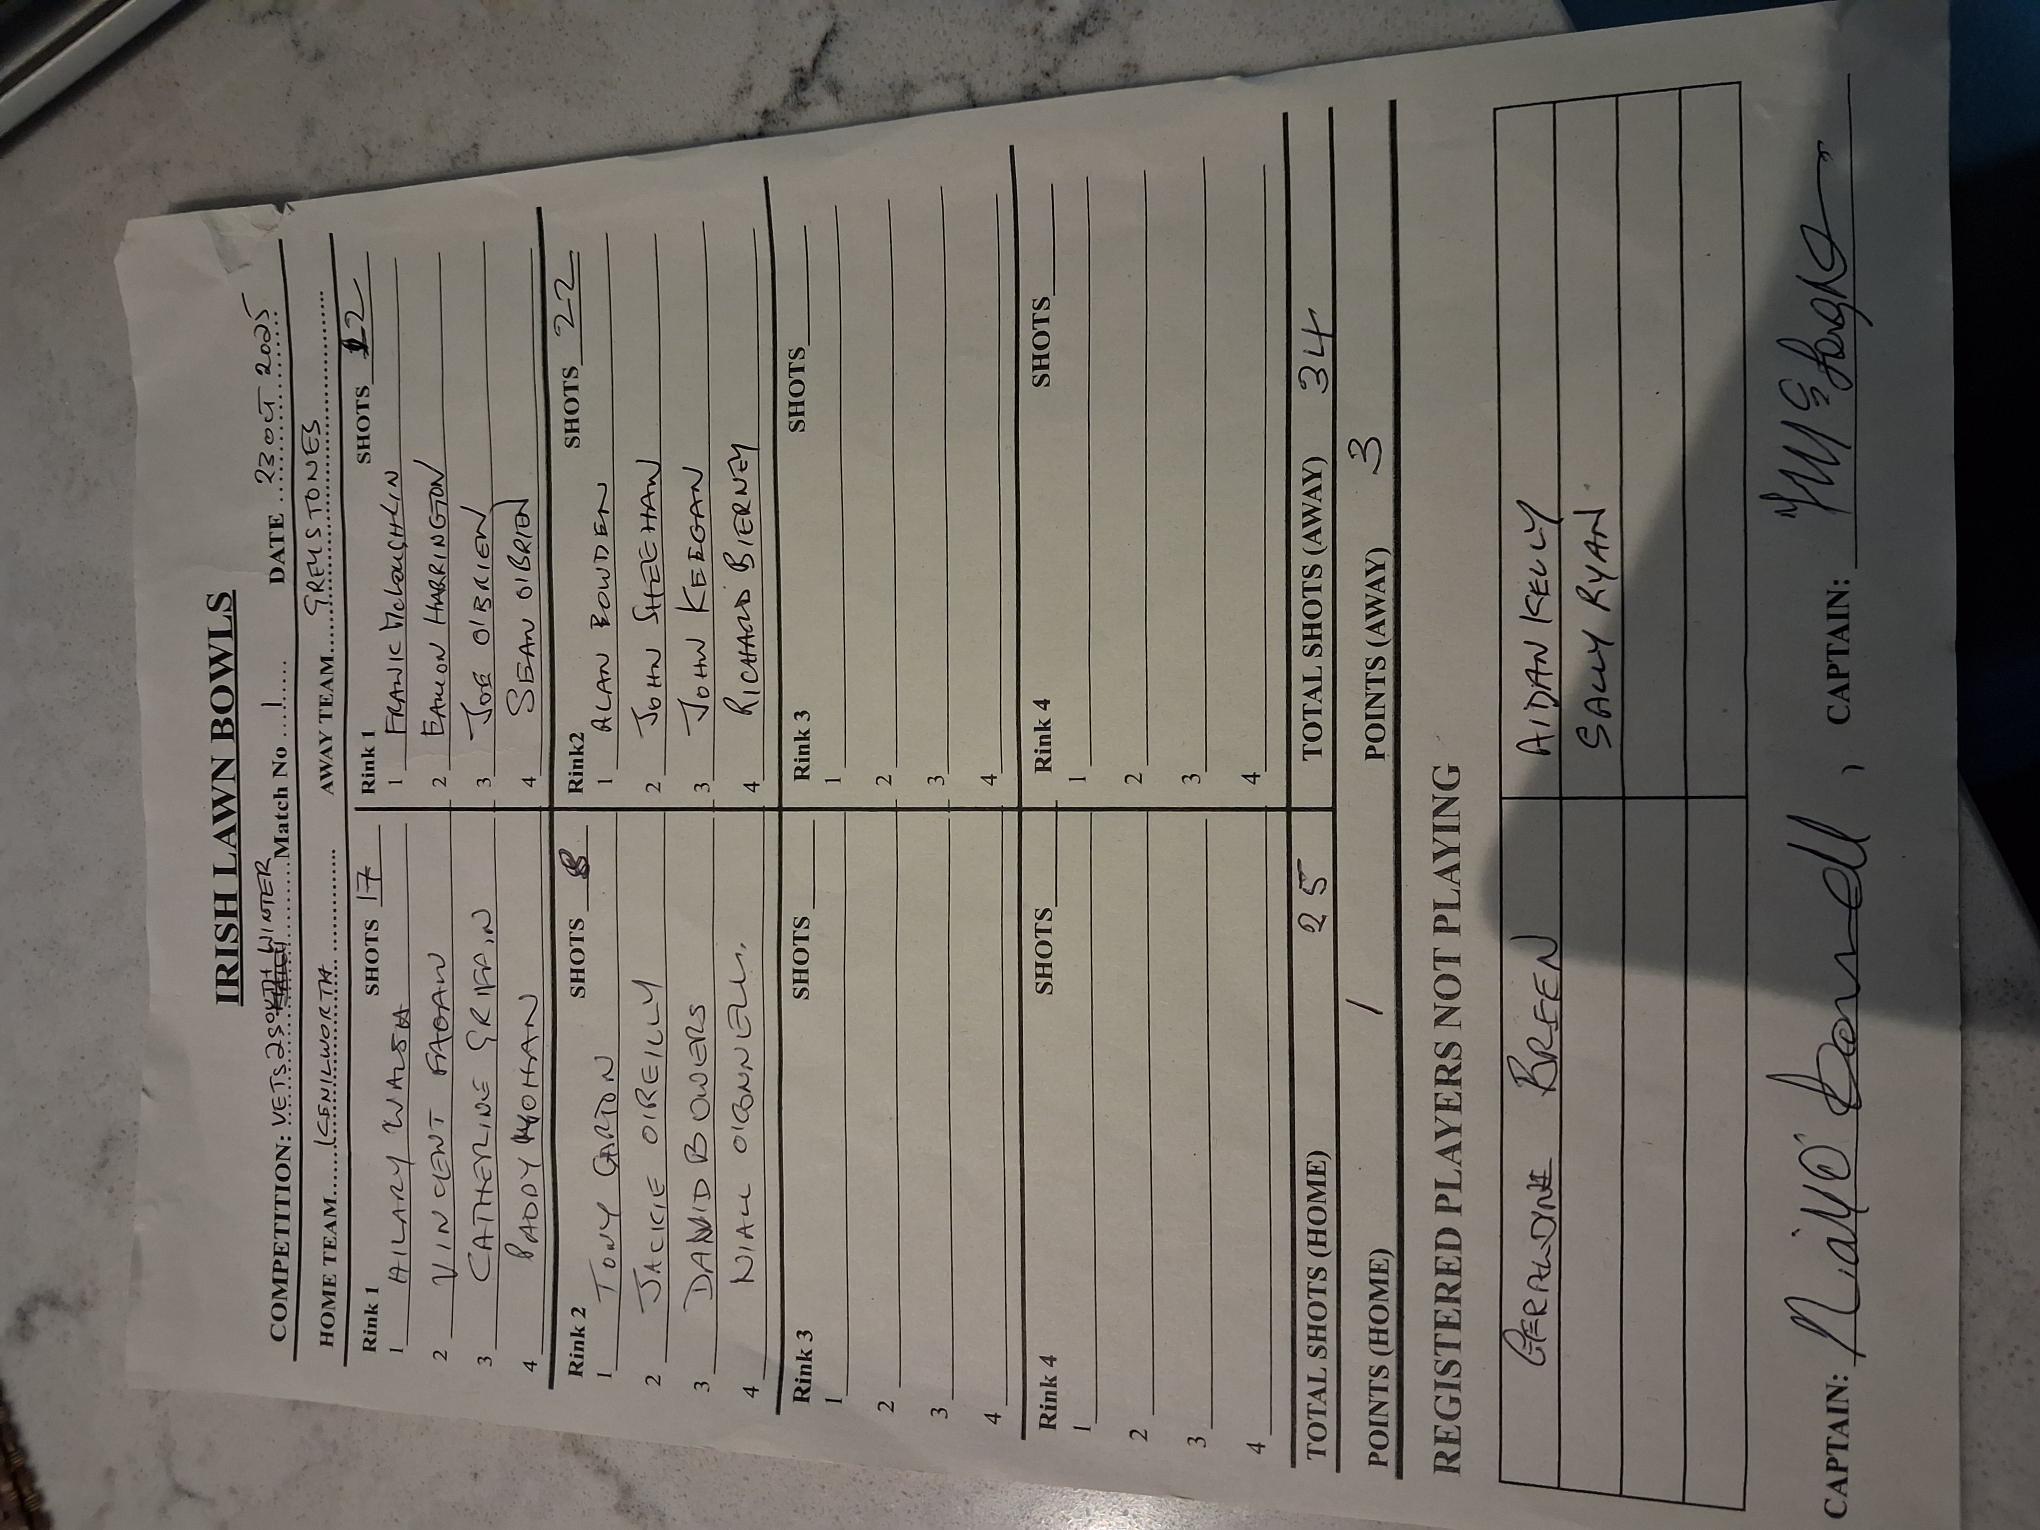 IRISH LAWN BOWLS
COMPETITION: VETS 2 SOUTH WINTER Match No 1 DATE 23 OCT 2025
HOME TEAM KENILWORTH AWAY TEAM GREYSTONES
Rink 1 SHOTS 17 Rink 1 SHOTS 12
1 HILARY WALSH 1 FRANK McLOUGHLIN
2 VINCENT FAGAN 2 EAMON HARRINGTON
3 CATHERINE GRIFFIN 3 JOE O'BRIEN
4 PADDY MOHAN 4 SEAN O'BRIEN
Rink 2 SHOTS 8 Rink2 SHOTS 22
1 TONY CARTON 1 ALAN BOWDEN
2 JACKIE O'REILLY 2 JOHN SHEEHAN
3 DAVID BOWERS 3 JOHN KEEGAN
4 NIALL O'CONNELL. 4 RICHARD BIERNEY
Rink 3 SHOTS Rink 3 SHOTS
1 1
2 2
3 3
4 4
Rink 4 SHOTS Rink 4 SHOTS
1 1
2 2
3 3
4 4
TOTAL SHOTS (HOME) 25 TOTAL SHOTS (AWAY) 34
POINTS (HOME) 1 POINTS (AWAY) 3
REGISTERED PLAYERS NOT PLAYING
GERALDINE BREEN AIDAN KELLY
SALLY RYAN
CAPTAIN: Niall CAPTAIN: